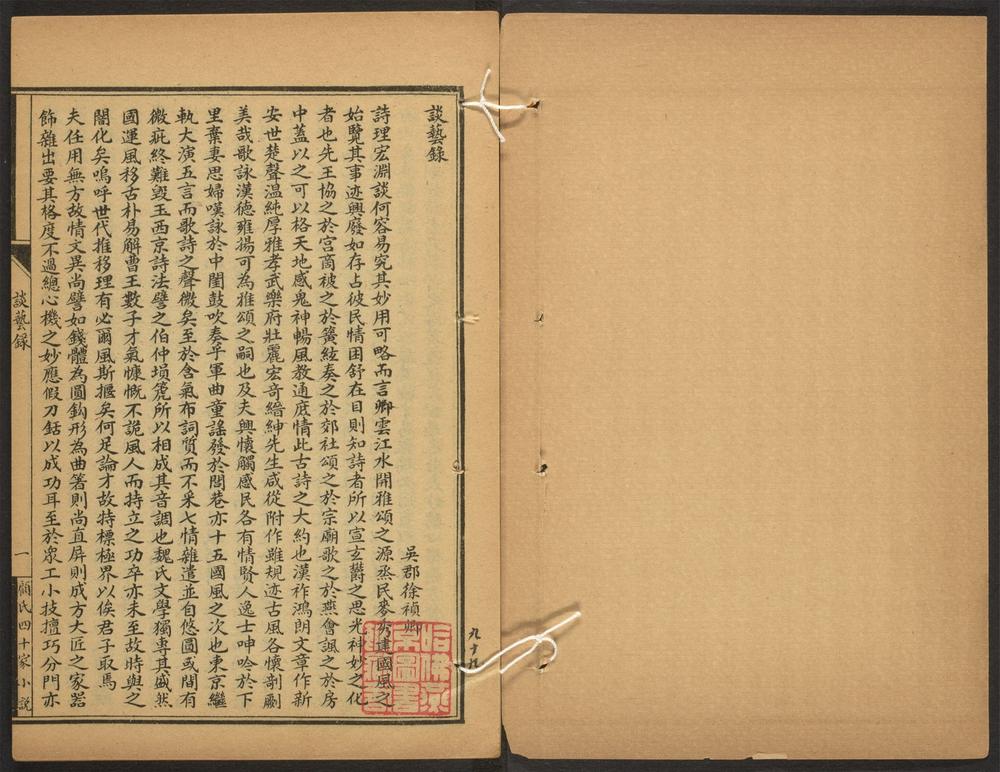 談藝錄
吳郡徐禎卿
詩理宏淵談何容易究其妙用可略而言卿雲江水開雅頌之源烝民麥秀建國風之
始覽其事迹興廢如存占彼民情困舒在目則知詩者所以宣玄鬱之思光神妙之化
者也先王協之於宮商被之於簧絃奏之於郊社頌之於宗廟歌之於燕會諷之於房
中蓋以之可以格天地感鬼神暢風教通庶情此古詩之大約也漢祚鴻朗文章作新
安世楚聲温純厚雅孝武樂府壯麗宏奇縉紳先生咸從附作雖規迹古風各懷剞劂
美哉歌詠漢德雍揚可為雅頌之嗣也及夫興懷觸感民各有情賢人逸士呻吟於下
里棄妻思婦嘆詠於中閨鼓吹奏乎軍曲童謠發於閭巷亦十五國風之次也東京繼
軌大演五言而歌詩之聲微矣至於含氣布詞質而不采七情雜遣並自悠圓或間有
微疵終難毀玉西京詩法譬之伯仲塤箎所以相成其音調也魏氏文學獨專其盛然
國運風移古朴易解曹王數子才氣慷慨不詭風人而持立之功卒亦未至故時與之
闇化矣嗚呼世代推移理有必爾風斯摳矣何足論才故特標極界以俟君子取焉
夫任用無方故情文異尚譬如錢體為圓鈎形為曲箸則尚直屏則成方大匠之家器
飾雜出要其格度不過總心機之妙應假刀銛以成功耳至於衆工小技擅巧分門亦
談藝録
一
顧氏四十家小說
九十九